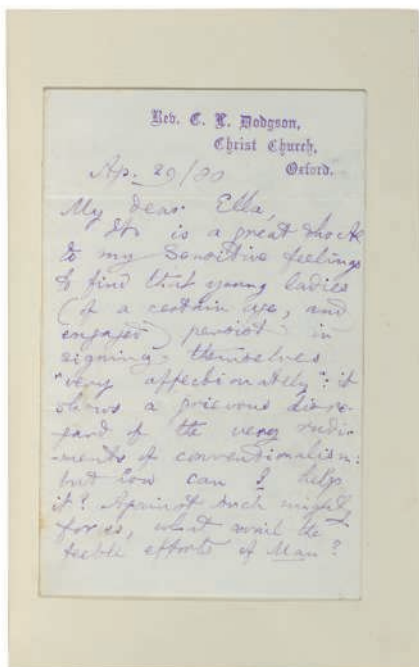 Rev. C. L. Dodgson,
Christ Church,
Oxford.
Ap. 29/80
My dear Ella,
It is a great shock
to my sensitive feelings
to find that young ladies
(of a certain age, and
engaged) persist in
signing themselves
"very affectionately": it
shows a grievous disre-
gard of the very rudi-
ments of conventionalism:
but how can I help
it? Against such mighty
forces, what avail the
feeble efforts of Man?